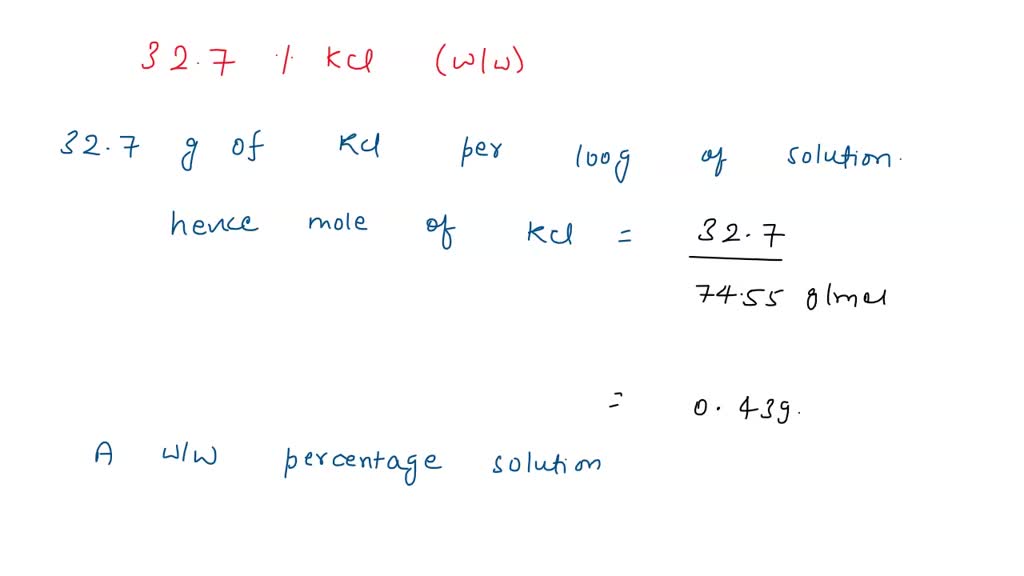 32.7 % KCl (w/w)
32.7 g of KCl per 100g of solution.
hence mole of KCl = 32.7
74.55 g/mol
= 0.439.
A w/w percentage solution